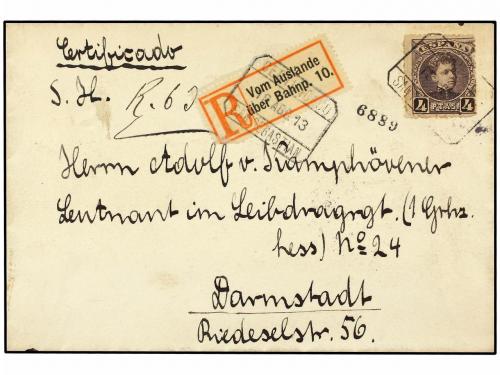 Certificado
S. H. R. 63
R Vom Auslande
über Bahnp. 10.
13
SEBASTIAN
6889
ESPAÑA
4 PTAS 4
SAN
Herrn Adolf v. Kamphövener
Leutnant im Leibdragrgt. (1 Grhz.
hess) No 24
Darmstadt
Riedeselstr. 56.